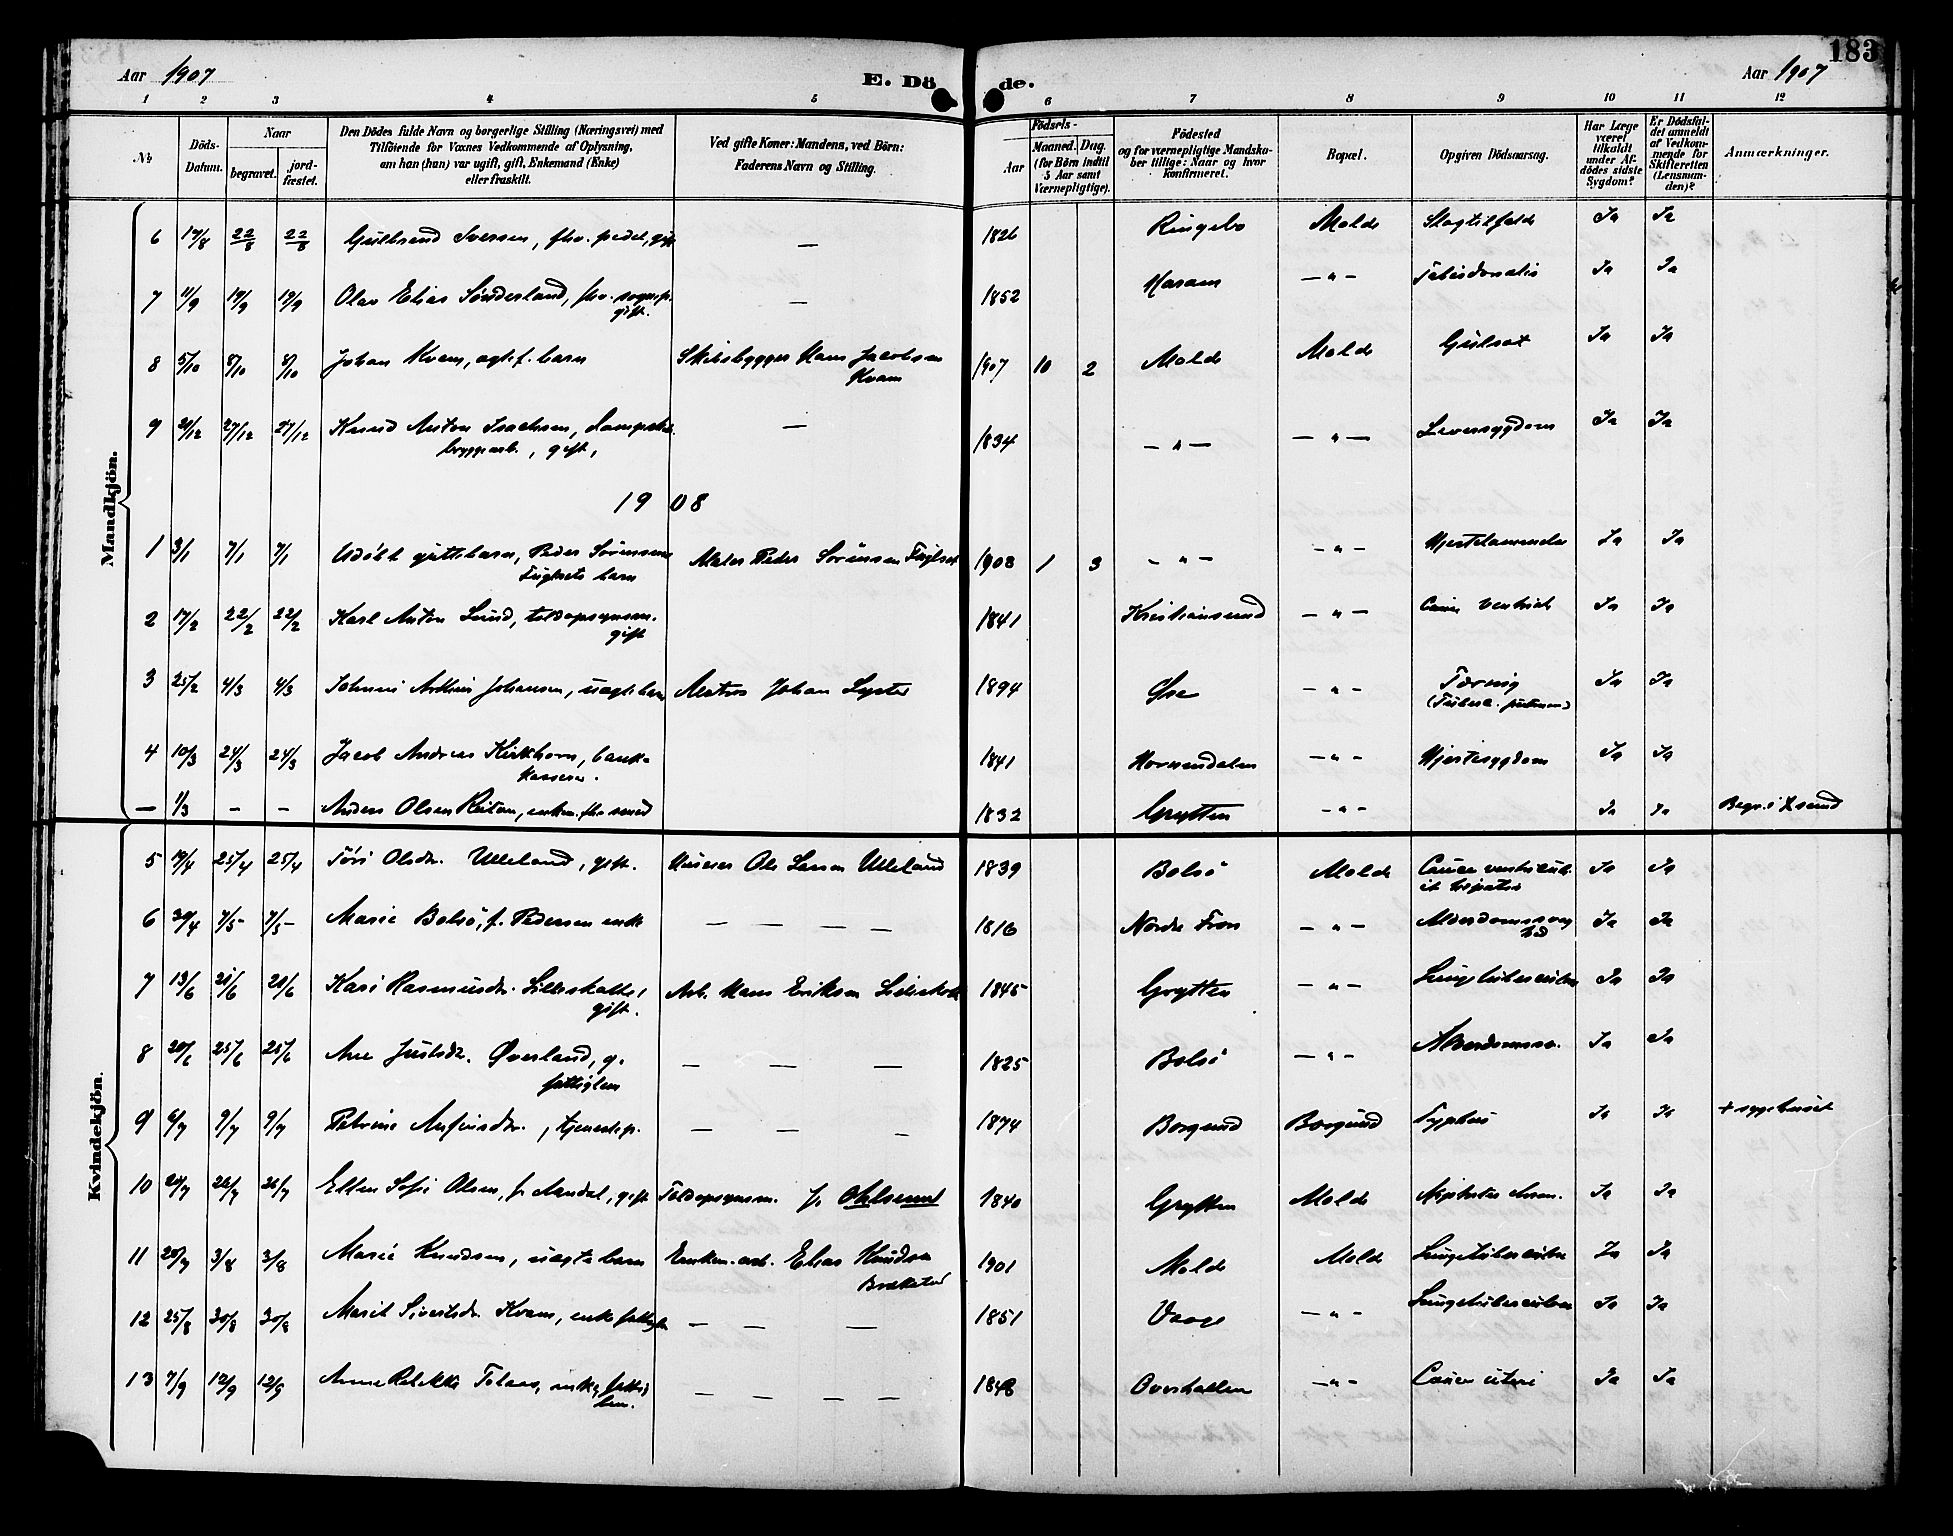 183
Aar 1907 E. Dö de. Aar 1907
1 2 3 4 5 6 7 8 9 10 11 12
№ Döds-Datum. Naar begravet. jordfæstet. Den Dödes fulde Navn og borgerlige Stilling (Næringsvei) med Tilföiende for Voxnes Vedkommende af Oplysning, om han (hun) var ugift, gift, Enkemand (Enke) eller fraskilt. Ved gifte Koner: Mandens, ved Börn: Faderens Navn og Stilling. Födsels- Aar Maaned. Dag. (for Börn indtil 5 Aar samt Værnepligtige). Födested og for værnepligtige Mandskaber tillige: Naar og hvor konfirmeret. Bopæl. Opgiven Dödsaarsag. Har Læge været tilkaldt under Afdödes sidste Sygdom? Er Dödsfaldet anmeldt af Vedkommende for Skifteretten (Lensmanden)? Anmærkninger.
Mandkjön.
6 17/8 22/8 22/8 Gulbrand Iversen, fhv. pedel, gift — 1826 Ringebo Molde Slagtilfælde Ja Ja
7 11/9 19/9 19/9 Olav Elias Sönderland, fhv. sognep. — 1852 Haram — " — Ja Ja
gift.
8 5/10 8/10 8/10 Johan Kvam, egtef. barn Skibsbygger Hans Jacobsen 1907 10 2 Molde Molde Gulsot Ja Ja
Kvam
9 21/12 27/12 27/12 Knud Anton Isachsen, Dampskibs — 1834 — " — — " — Leversygdom Ja Ja
bryggearb., gift,
1908
1 3/1 7/1 7/1 Udöbt guttebarn, Peder Sörensen Maler Peder Sörensen Fuglset 1908 1 3 — " — — " — Hjertelammelse Ja Ja
Fuglsets barn
2 17/2 22/2 22/2 Karl Anton Lund, toldopsynsm. 1841 Kristiansund — " — Cancer ventricli Ja Ja
gift
3 25/2 4/3 4/3 Johannes Arthur Johansen, uegte barn Matros Johan Lyster 1894 — " — Tæring Ja Ja
(Tuberc. pulmon)
4 10/3 24/3 24/3 Jacob Andreas Kirkhorn, bank- 1841 Hornindalen — " — Hjertesygdom Ja Ja
kasserer.
— 1/3 — — Anders Olsen Reitan, enkem. fhv smed 1832 Grytten — " — Ja Ja Begr. i Xsund
Kvindekjön.
5 19/4 25/4 25/4 Töri Olsdtr. Ulleland, gift. Murer Ole Larsen Ulleland 1839 Bolsö Molde Cancer ventriculi Ja Ja
et hepatis
6 30/4 7/5 7/5 Marie Bolsö, f. Pedersen enke — — — — 1816 Nordre Fron — " — Alderdomssvag Ja Ja
hd
7 13/6 21/6 21/6 Kari Rasmusdtr. Lilleskatte, Arb. Hans Eriksen 1845 Grytten — " — Lungetuberculose Ja Ja
gift.
8 20/6 25/6 25/6 Ane Justsdtr. Överland, g. — — — 1825 Bolsö — " — Alderdomssv. Ja Ja
fattiglem
9 6/7 9/7 9/7 Petrine Anfinsdtr., tjenestep. — — — 1874 Borgund Borgund Typhus Ja Ja + sygehuset
10 20/7 26/7 26/7 Ellen Sofie Olsen, f. Aandal, gift Toldopsynsm. 1840 Grytten Molde Nephritis chron. Ja Ja
11 28/7 3/8 3/8 Marie Knudsen, uegte barn Enkem. arb. Elias Knudsen 1901 Molde Molde Lungetuberculose Ja Ja
12 25/8 30/8 30/8 Marit Sivertsdr Kvam, enke fattiglem — — — 1851 Vaage — " — Lungetuberculose Ja Ja
13 7/9 12/9 12/9 Anne Rebekka Tolaas, enke, fattig — — — — 1848 Overhallen — " — Cancer uteri Ja Ja
lem.